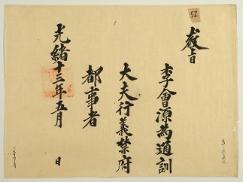 敎旨
李會源爲通訓
大夫行義禁府
都事者
光緖十三年五月 日